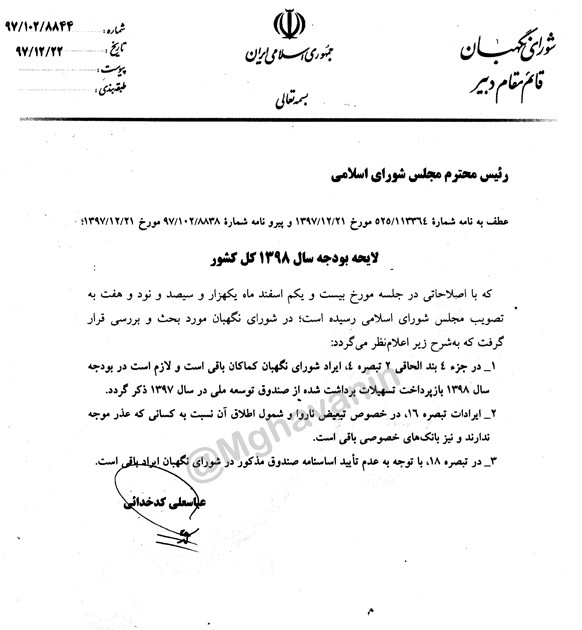 شورای نگهبان
قائم مقام دبیر
جمهوری اسلامی ایران
بسمه تعالی
شماره : ۹۷/۱۰۲/۸۸۴۴
تاریخ : ۹۷/۱۲/۲۲
پیوست :
طبقه‌بندی :
رئیس محترم مجلس شورای اسلامی
عطف به نامه شمارهٔ ۵۲۵/۱۱۳۳۶۴ مورخ ۱۳۹۷/۱۲/۲۱ و پیرو نامه شمارهٔ ۹۷/۱۰۲/۸۸۳۸ مورخ ۱۳۹۷/۱۲/۲۱؛
لایحه بودجه سال ۱۳۹۸ کل کشور
که با اصلاحاتی در جلسه مورخ بیست و یکم اسفند ماه یکهزار و سیصد و نود و هفت به
تصویب مجلس شورای اسلامی رسیده است؛ در شورای نگهبان مورد بحث و بررسی قرار
گرفت که به‌شرح زیر اعلام‌نظر می‌گردد:
۱_ در جزء ۴ بند الحاقی ۲ تبصره ۴، ایراد شورای نگهبان کماکان باقی است و لازم است در بودجه
سال ۱۳۹۸ بازپرداخت تسهیلات برداشت شده از صندوق توسعه ملی در سال ۱۳۹۷ ذکر گردد.
۲_ ایرادات تبصره ۱۶، در خصوص تبعیض ناروا و شمول اطلاق آن نسبت به کسانی که عذر موجه
ندارند و نیز بانک‌های خصوصی باقی است.
۳_ در تبصره ۱۸، با توجه به عدم تأیید اساسنامه صندوق مذکور در شورای نگهبان ایراد باقی است.
عباسعلی کدخدائی
@Mghavanin
م